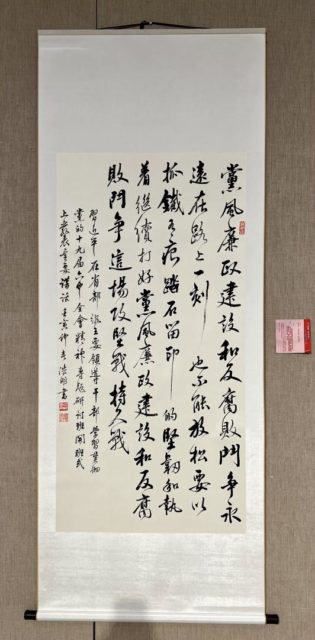 黨風廉政建設和反腐敗鬥争永
遠在路上一刻也不能放松要以
抓鐵有痕踏石留印的堅韌和執
着繼續打好黨風廉政建設和反腐
敗鬥争這場攻堅戰持久戰
習近平在省部級主要領導干部學習貫彻
黨的十九届六中全會精神專題研討班開班式
上發表重要講話 壬寅仲 浩明書